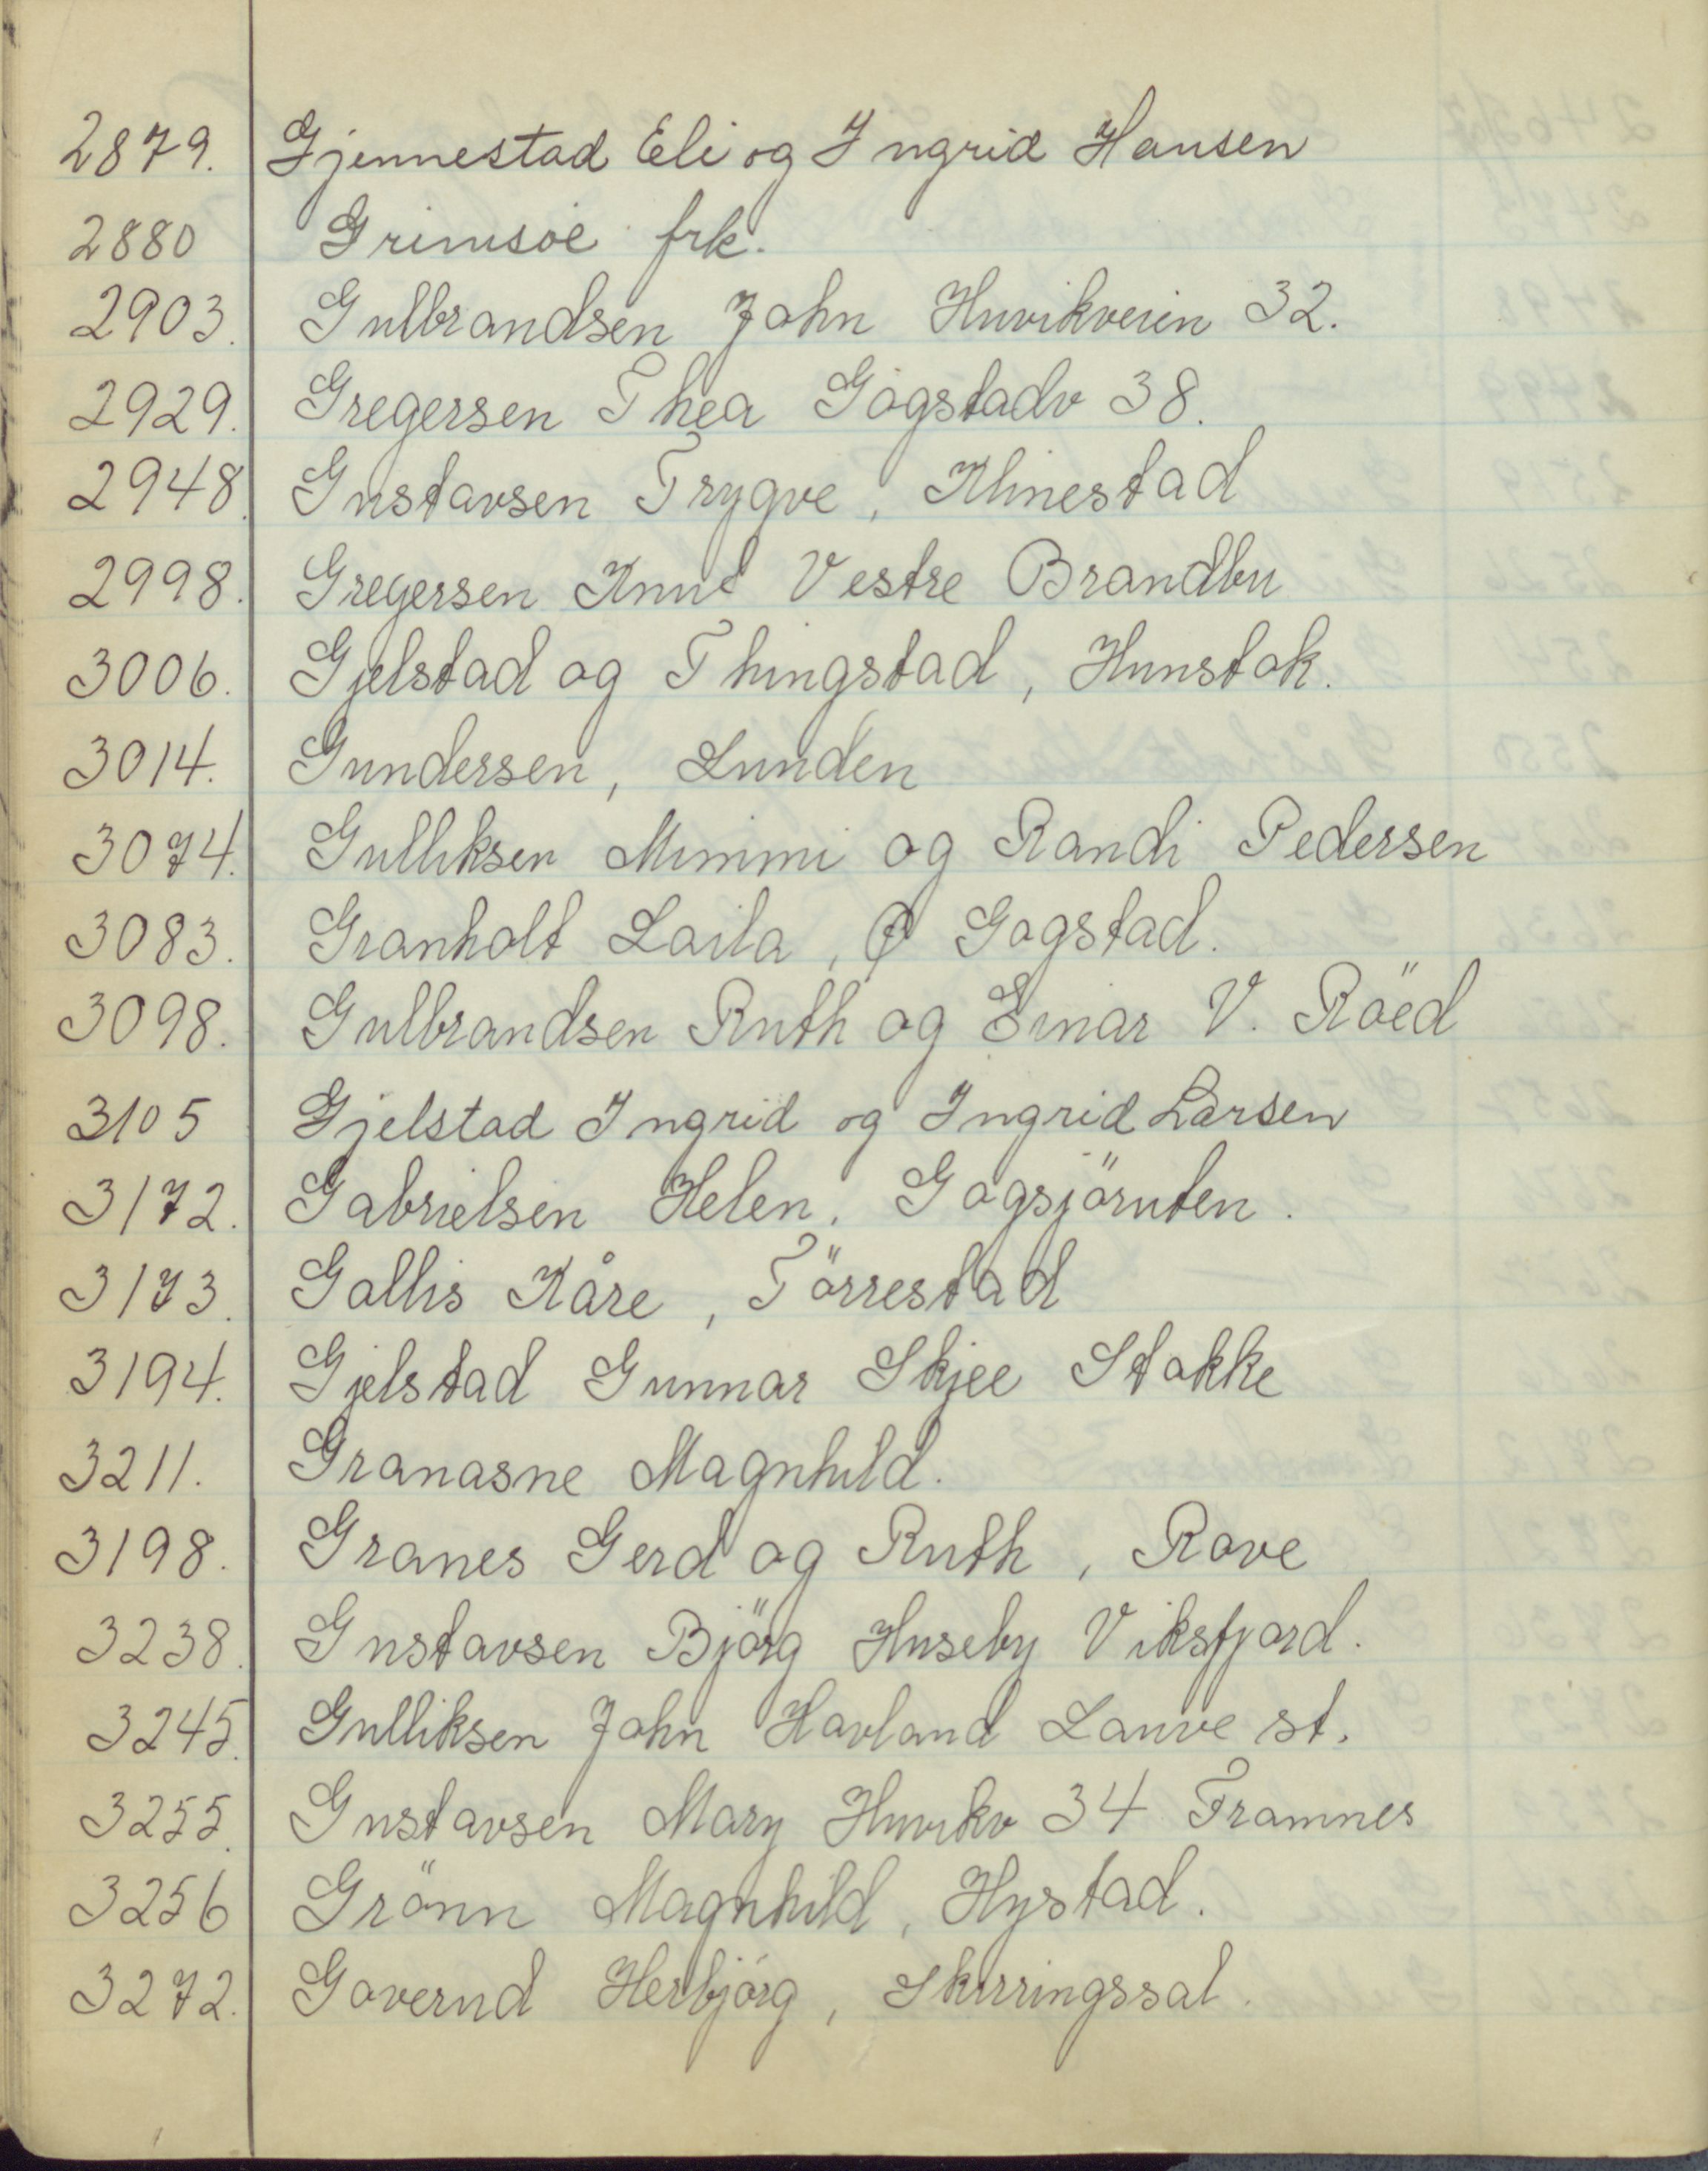 2879. Gjennestad Eli og Ingrid Hansen
2880 Grimsöe frk.
2903. Gulbrandsen John Huvikveien 32.
2929. Gregersen Thea Gögstadv 38.
2948. Gustavsen Trygve, Klinestad
2998. Gregersen Knut Vestre Brandbu
3006. Gjelstad og Thingstad, Hunstok.
3014. Gundersen, Lunden
3074. Gulliksen Mimmi og Randi Pedersen
3083. Granholt Laila, Ø Gogstad.
3098. Gulbrandsen Ruth og Einar V. Röed
3105 Gjelstad Ingrid og Ingrid Larsen
3172. Gabrielsen Helen, Gogsjöruten.
3173. Gallis Kåre, Törrestad
3194. Gjelstad Gunnar Skjee Stokke
3211. Granasne Magnhild.
3198. Granes Gerd og Ruth, Rove
3238. Gustavsen Björg Huseby Viksfjord.
3245. Gulliksen John Havland Lauve st.
3255. Gustavsen Mary Huvikv 34 Framnes
3256 Grönn Magnhild, Hystad.
3272. Goverud Herbjörg, Skirringssal.